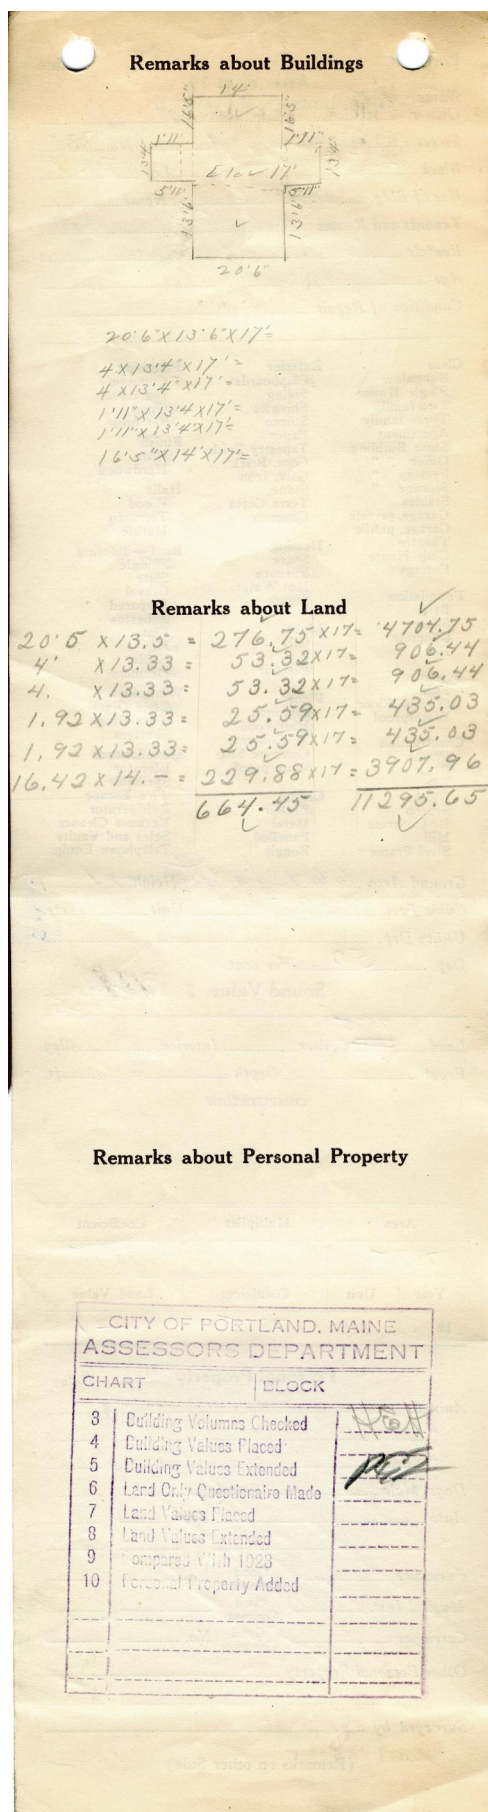 Remarks about Buildings
14'
16'5" 16'5"
1'11" 1'11"
13'4" Elev 17' 13'4"
5'11" 5'11"
13'6" 13'6"
20'6"
20'6" X 13'6" X 17' =
4 X 13'4" X 17' =
4 X 13'4" X 17' =
1'11" X 13'4 X 17' =
1'11" X 13'4" X 17' =
16'5" X 14' X 17' =
Remarks about Land
20.5 X 13.5 = 276.75 X 17 = 4704.75
4' X 13.33 = 53.32 X 17 = 906.44
4. X 13.33 = 53.32 X 17 = 906.44
1.92 X 13.33 = 25.59 X 17 = 435.03
1.92 X 13.33 = 25.59 X 17 = 435.03
16.42 X 14.- = 229.88 X 17 = 3907.96
664.45 11295.65
Remarks about Personal Property
CITY OF PORTLAND, MAINE
ASSESSORS DEPARTMENT
CHART BLOCK
3 Building Volumns Checked
4 Building Values Placed
5 Building Values Extended
6 Land Only Questionaire Made
7 Land Values Placed
8 Land Values Extended
9 Compared With 1923
10 Personal Property Added